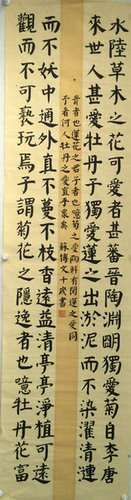 水陸草木之花可愛者甚蕃晉陶淵明獨愛菊自李唐
来世人甚愛牡丹予獨愛蓮之出淤泥而不染濯清漣
而不妖中通外直不蔓不枝香遠益清亭亭淨植可遠
觀而不可褻玩焉予謂菊花之隱逸者也噫牡丹花富
貴者也蓮花之君子者也噫菊之愛陶鮮有聞蓮之愛同
予者何人牡丹之愛宜乎衆矣 蘇傳文十歲書